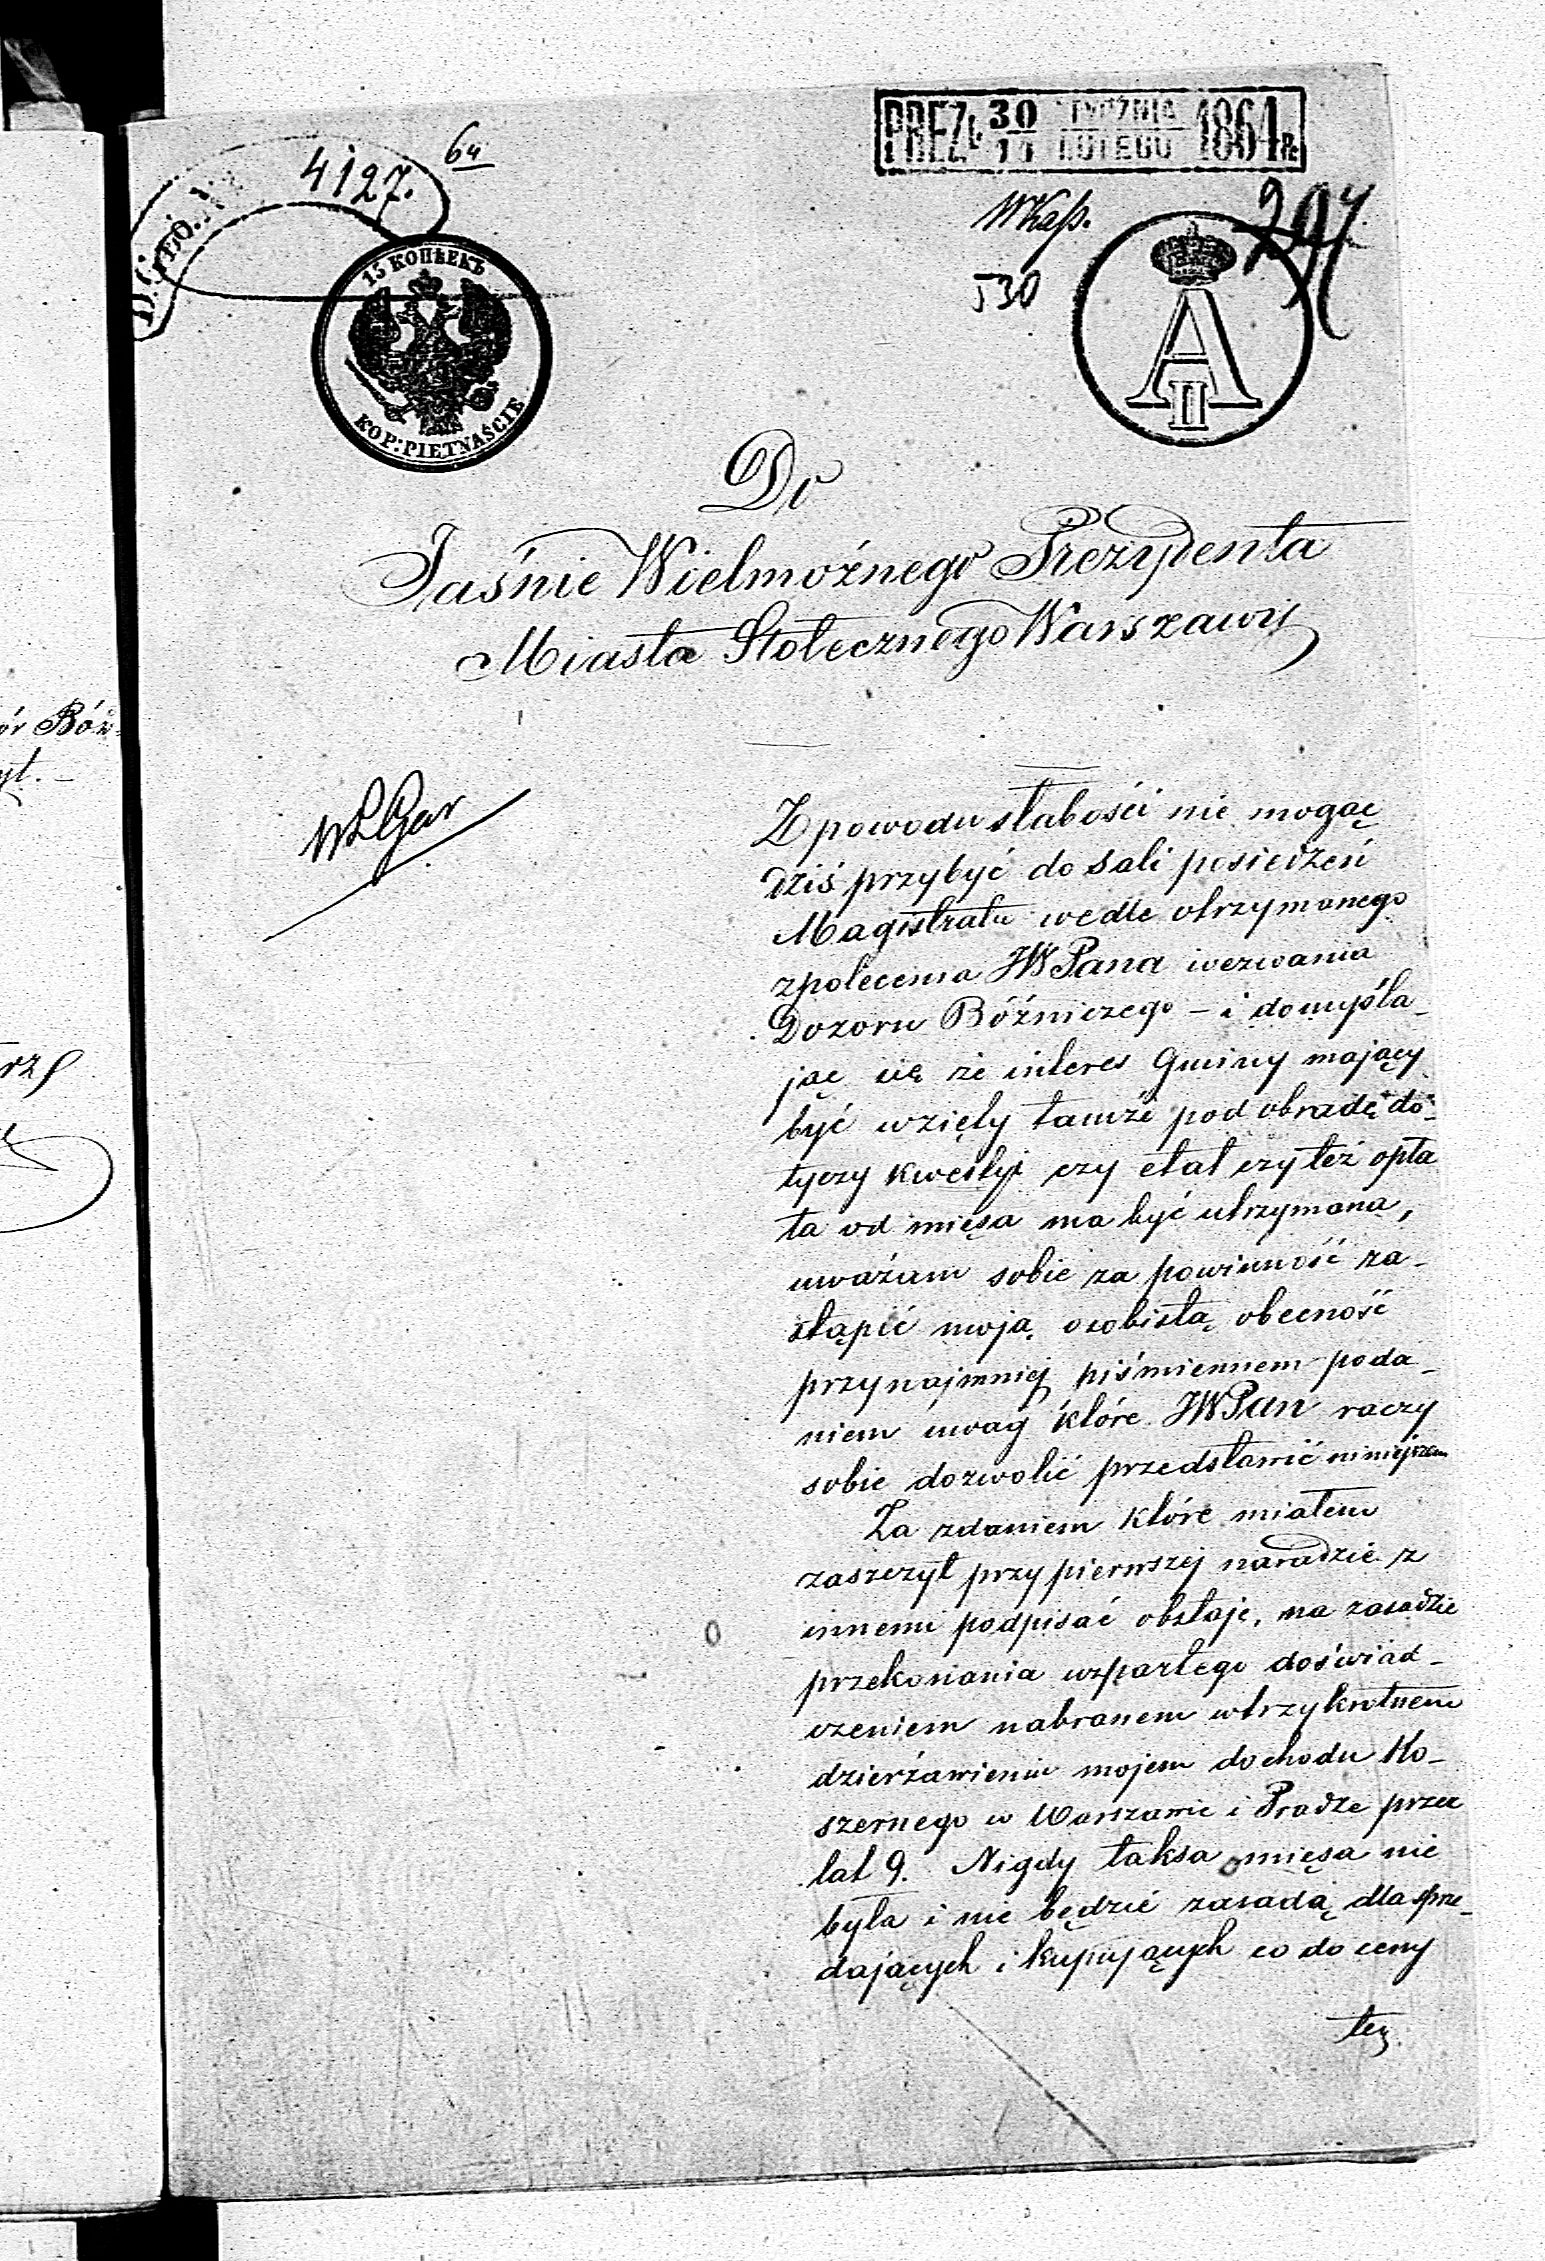 PREZ. 30 STYCZNIA 1864 R.
11 LUTEGO
4127.
WKasp.
530
15 КОПѢЕКЪ
KOP: PIĘTNAŚCIE
A II
Do
Jaśnie Wielmożnego Prezydenta
Miasta Stołecznego Warszawy
Z powodu słabości nie mogąc
dziś przybyć do sali posiedzeń
Magistratu wedle otrzymanego
z polecenia JWPana wezwania
Dozoru Bóźniczego – i domyśla-
jąc się że interes Gminy mający
być wzięty tamże pod obradę do-
tyczy kwestyi czy etat czy też opła
ta od mięsa ma być utrzymana,
uważam sobie za powinność za-
stąpić moją osobistą obecność
przynajmniej piśmiennem poda-
niem uwag które JWPan raczy
sobie dozwolić przedstawić niniejszem
Za zdaniem które miałem
zaszczyt przy pierwszej naradzie z
innemi podpisać obstaję, na zasadzie
przekonania wspartego doświad-
czeniem nabranem w trzykrotnem
dzierżawieniu mojem dochodu Ko-
szernego w Warszawie i Pradze przez
lat 9. Nigdy taksa mięsa nie
była i nie będzie zasadą dla sprze-
dających i kupujących co do ceny
tej